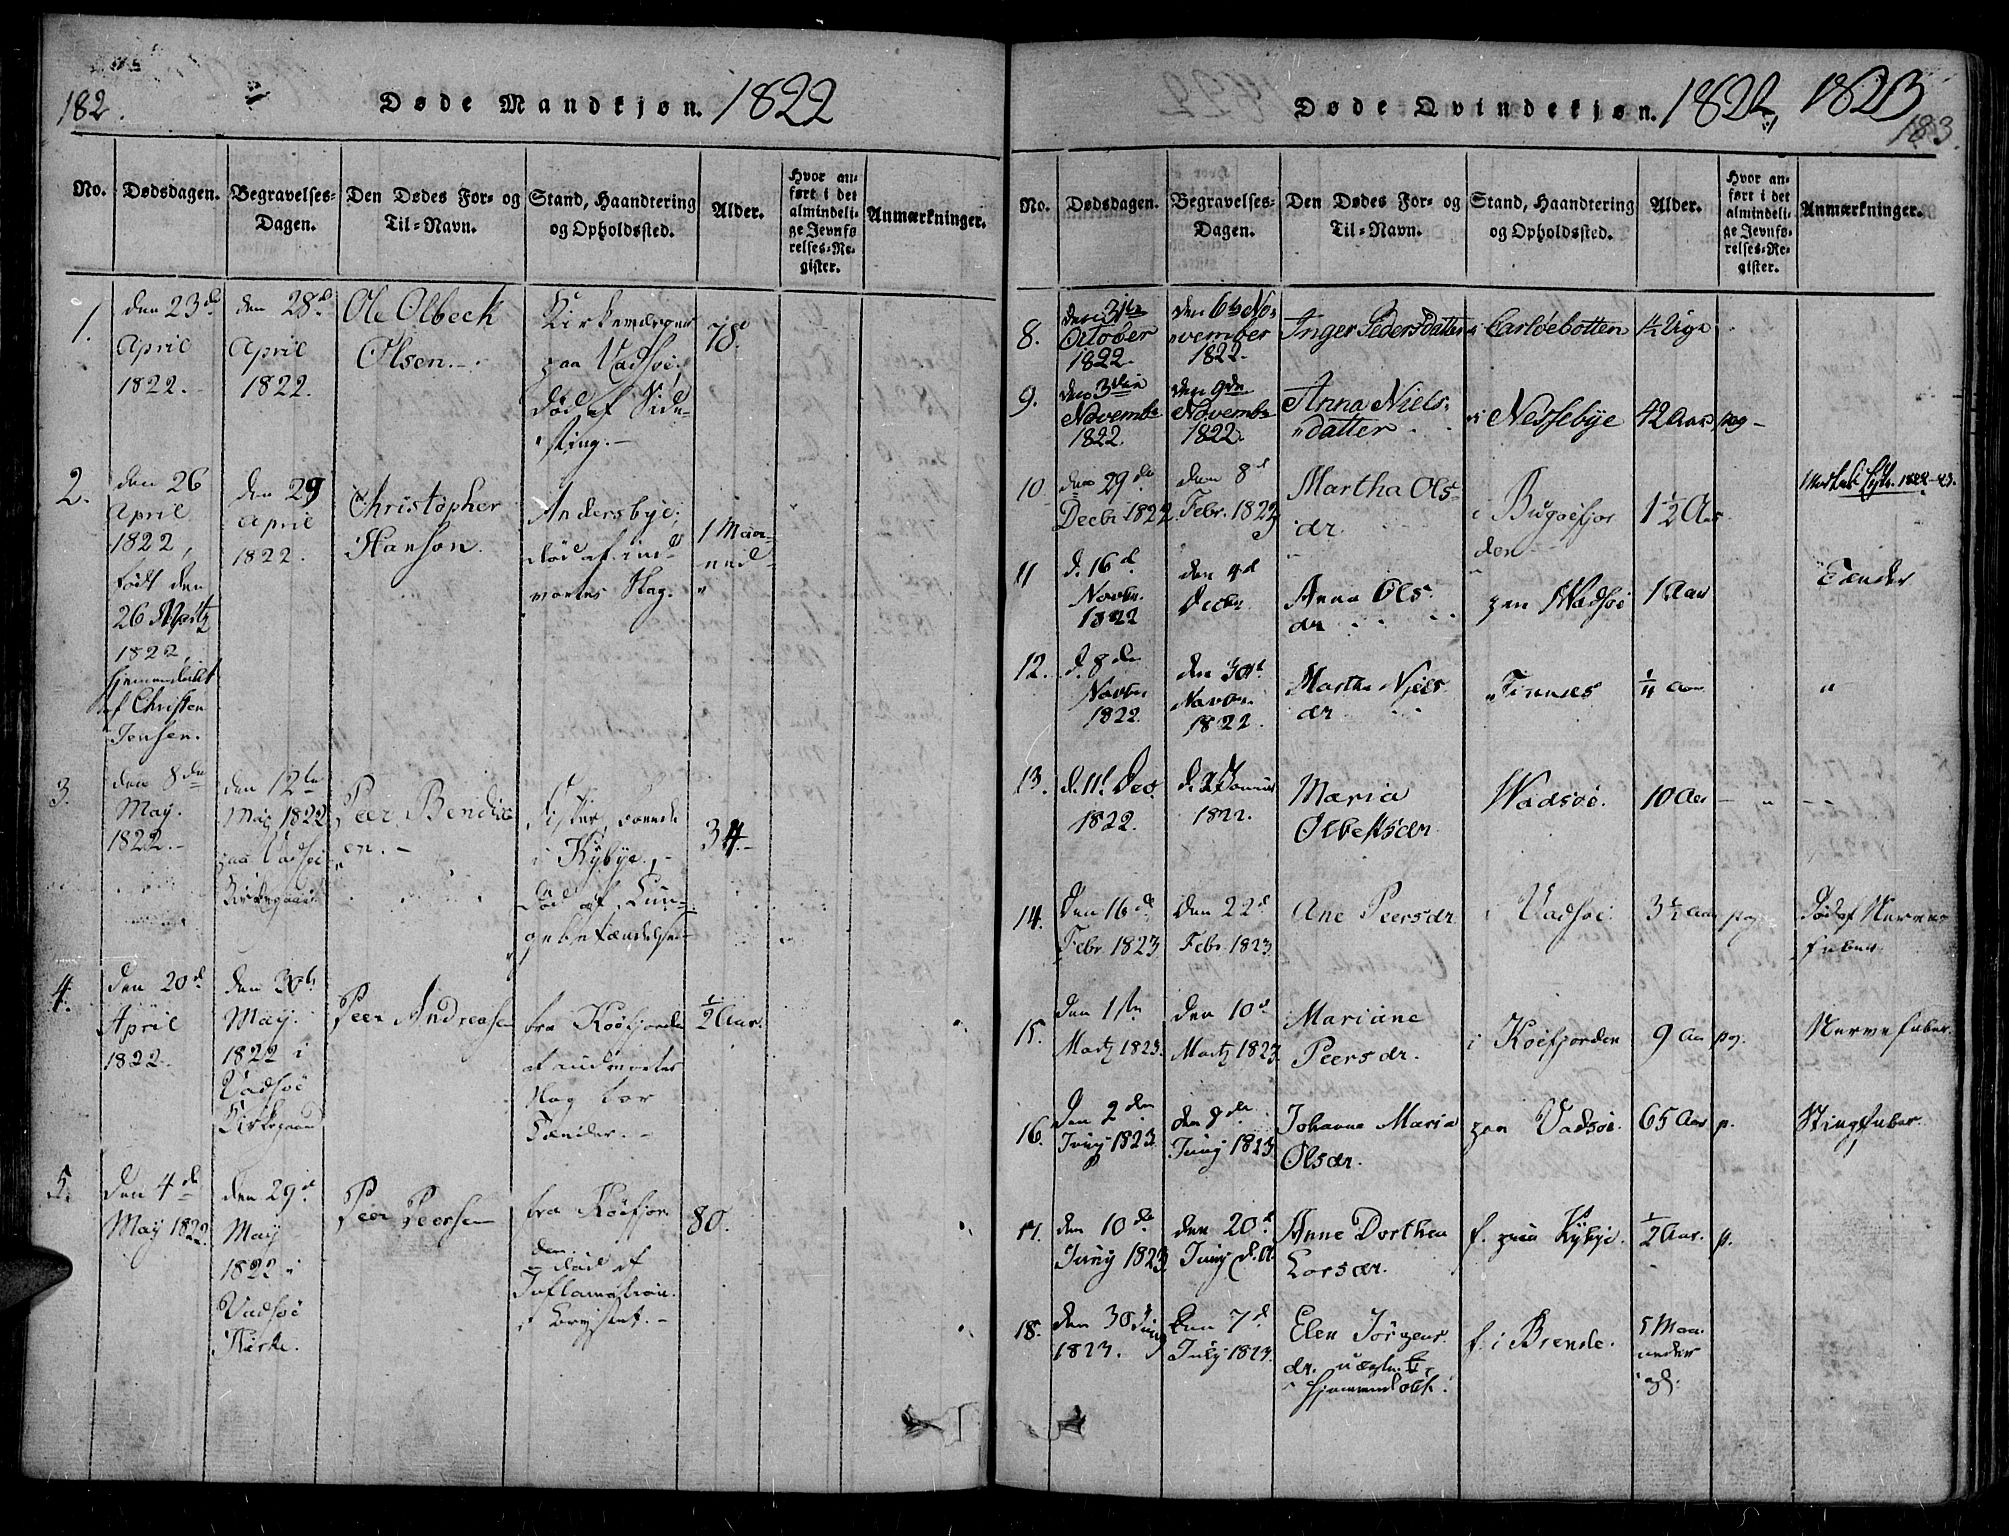 182.
Døde Mandkjøn. 1822
No.
Dødsdagen.
Begravelses-
Dagen.
Den Dødes For- og
Til-Navn.
Stand, Haandtering
og Opholdssted.
Alder.
Hvor an-
ført i det
almindeli-
ge Jevnfø-
relses-Re-
gister.
Anmærkninger.
1.
den 23de
April
1822.
den 28de
April
1822.
Ole Olbeck
Olsen.
Kirkeværger
paa Vadsöe.
död af Side-
sting.
78.
2.
den 26
April
1822,
födt den
26 Martz
1822,
hjemmedöbt
af Christen
Jensen.
den 29
April
1822.
Christopher
Hanson.
Andersbye,
död af ind-
vortes Slag.
1 Maa-
ned
3.
den 8de
May.
1822.
den 12te
May 1822
paa Vadsöe
Kirkegaard.
Peer Bendix
en.
i Kybye,
död af Lun-
gebetændelse
34.
4.
den 20de
April
1822.
den
May.
1822 i
Vadsöe
Kirkegaard
Peer Andreasen
fra Köefjorden
af indvortes
Slag
Tænder.
1/2 Aar.
5.
den 4de
May 1822.
den 29de
May
1822 i
Vadsöe
Kirke.
Peer Peersen
fra Köefjor-
den
död af
Inflamation
i Brystet.
80.
Døde Qvindekjøn. 1822, 1823
183.
No.
Dødsdagen.
Begravelses-
Dagen.
Den Dødes For- og
Til-Navn.
Stand, Haandtering
og Opholdssted.
Alder.
Hvor an-
ført i det
almindeli-
ge Jevnfø-
relses-Re-
gister.
Anmærkninger.
8.
den 31te
October
1822.
den 6te No-
vember
1822.
Inger Pedersdatter
i Carlöebotten
Uge
9.
den 3die
Novembr
1822.
den 9de
Novembr
1822.
Anna Niels-
datter
i Nessebye
42 Aar
pag
10
den 29de
Decbr 1822
den 8de
Febr. 1822
Martha Ols
dr.
i Bugöefjor
den
1 1/2 Aar
11
d. 16de
Novbr.
1822
den 4de
Decbr
Anna Ols
dr
paa Wadsöe
1 Aar
Tænder
12.
d. 8de
Novbr
1822.
den 30te
Novbr.
1822.
Martha Niels
dr
Finnes
Aar
"
13.
d. 11te Dec.
1822.
1822.
Maria
Olbeksdr
Wadsöe.
10 Aar
14.
Den 16de
Febr 1823
den 22de
Febr. 1823
Ane Peersdr
i Vadsöe
3 1/2 Aar
pag
Död af Nerve-
feber
15.
den 1ste
Martz 1823.
den 10de
Martz 1823.
Mariane
Peersdr.
i Köefjorden
9 Aar
pag.
Nervefeber.
16.
Den 2den
Junij 1823.
den 8de
Junij 1823
Johanna Maria
Olsdr.
paa Vadsöe.
65 Aar
p.
Stingfeber.
17.
den 10de
Junij 1823
den 20de
Junij d. A
Anne Dorthea
Larsdr.
f. paa Kybye.
1/2 Aar.
p.
18.
den 30 Junij
1823.
den 7de
Julij 1823.
Elen Jörgens
dr. uægte
hjemmedöbt.
f. i Brende.
5 Maa-
neder